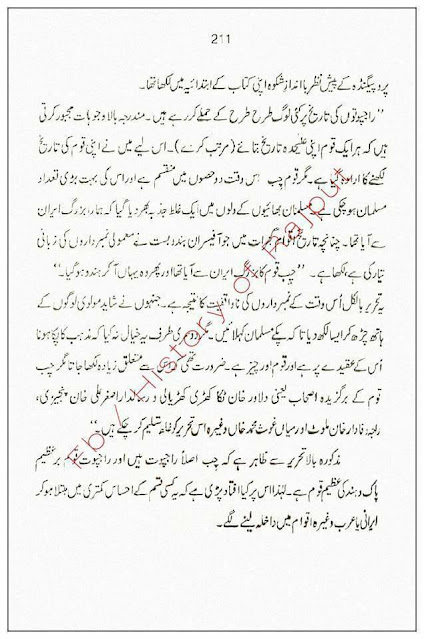 211
پروپیگنڈہ کے پیش نظر با انداز شکوہ اپنی کتاب کے ابتدائیہ میں لکھا تھا۔
’’راجپوتوں کی تاریخ پر کئی لوگ طرح طرح کے حملے کر رہے ہیں۔ مندرجہ بالا وجوہات مجبور کرتی
ہیں کہ ہر ایک قوم اپنی علیحدہ تاریخ بنائے (مرتب کرے)۔ اس لیے میں نے اپنی قوم کی تاریخ
لکھنے کا ارادہ کیا ہے۔ مگر قوم چب جس وقت دو حصوں میں منقسم ہے اور اس کی بہت بڑی تعداد
مسلمان ہو چکی ہے۔ مسلمان بھائیوں کے دلوں میں ایک غلط جذبہ بھر دیا گیا کہ ہمارا بزرگ ایران
سے آیا تھا۔ چنانچہ تاریخ اقوام گجرات میں جو آفیسران بندوبست نے معمولی نمبرداروں کی زبانی
تیار کی ہے لکھا ہے۔ ’’چب قوم کا بزرگ ایران سے آیا تھا اور پھر وہ یہاں آ کر ہندو ہو گیا‘‘
یہ تحریر بالکل اُس وقت کے نمبرداروں کی ناواقفیت کا نتیجہ ہے۔ جنہوں نے شاید مولوی لوگوں کے
ہاتھ چڑھ کر ایسا لکھ دیا تا کہ پکے مسلمان کہلائیں۔ دوسری طرف یہ خیال نہ کیا کہ مذہب کا پکا ہونا
اُس کے عقیدے پر ہے اور قوم اور چیز ہے۔ ضرورت تھی کہ اس سے متعلق زیادہ لکھا جاتا مگر چب
قوم کے برگزیدہ اصحاب یعنی دلاور خان نگا کھڑی کھڑیالی و رسالدار اصغر علی خان پنجیڑی،
راجہ وفادار خان ملوٹ اور میاں غوث محمد خاں وغیرہ اس تحریر کو غلط تسلیم کر چکے ہیں۔‘‘
مذکورہ بالا تحریر سے ظاہر ہے کہ چب اصلاً راجپوت ہیں اور راجپوت قوم برعظیم
پاک و ہند کی عظیم قوم ہے۔ لہٰذا اس پر کیا افتاد پڑی ہے کہ یہ کسی قسم کے احساس کمتری میں مبتلا ہو کر
ایرانی یا عرب وغیرہ اقوام میں داخلہ لینے لگے۔
Fb / History of Rajput